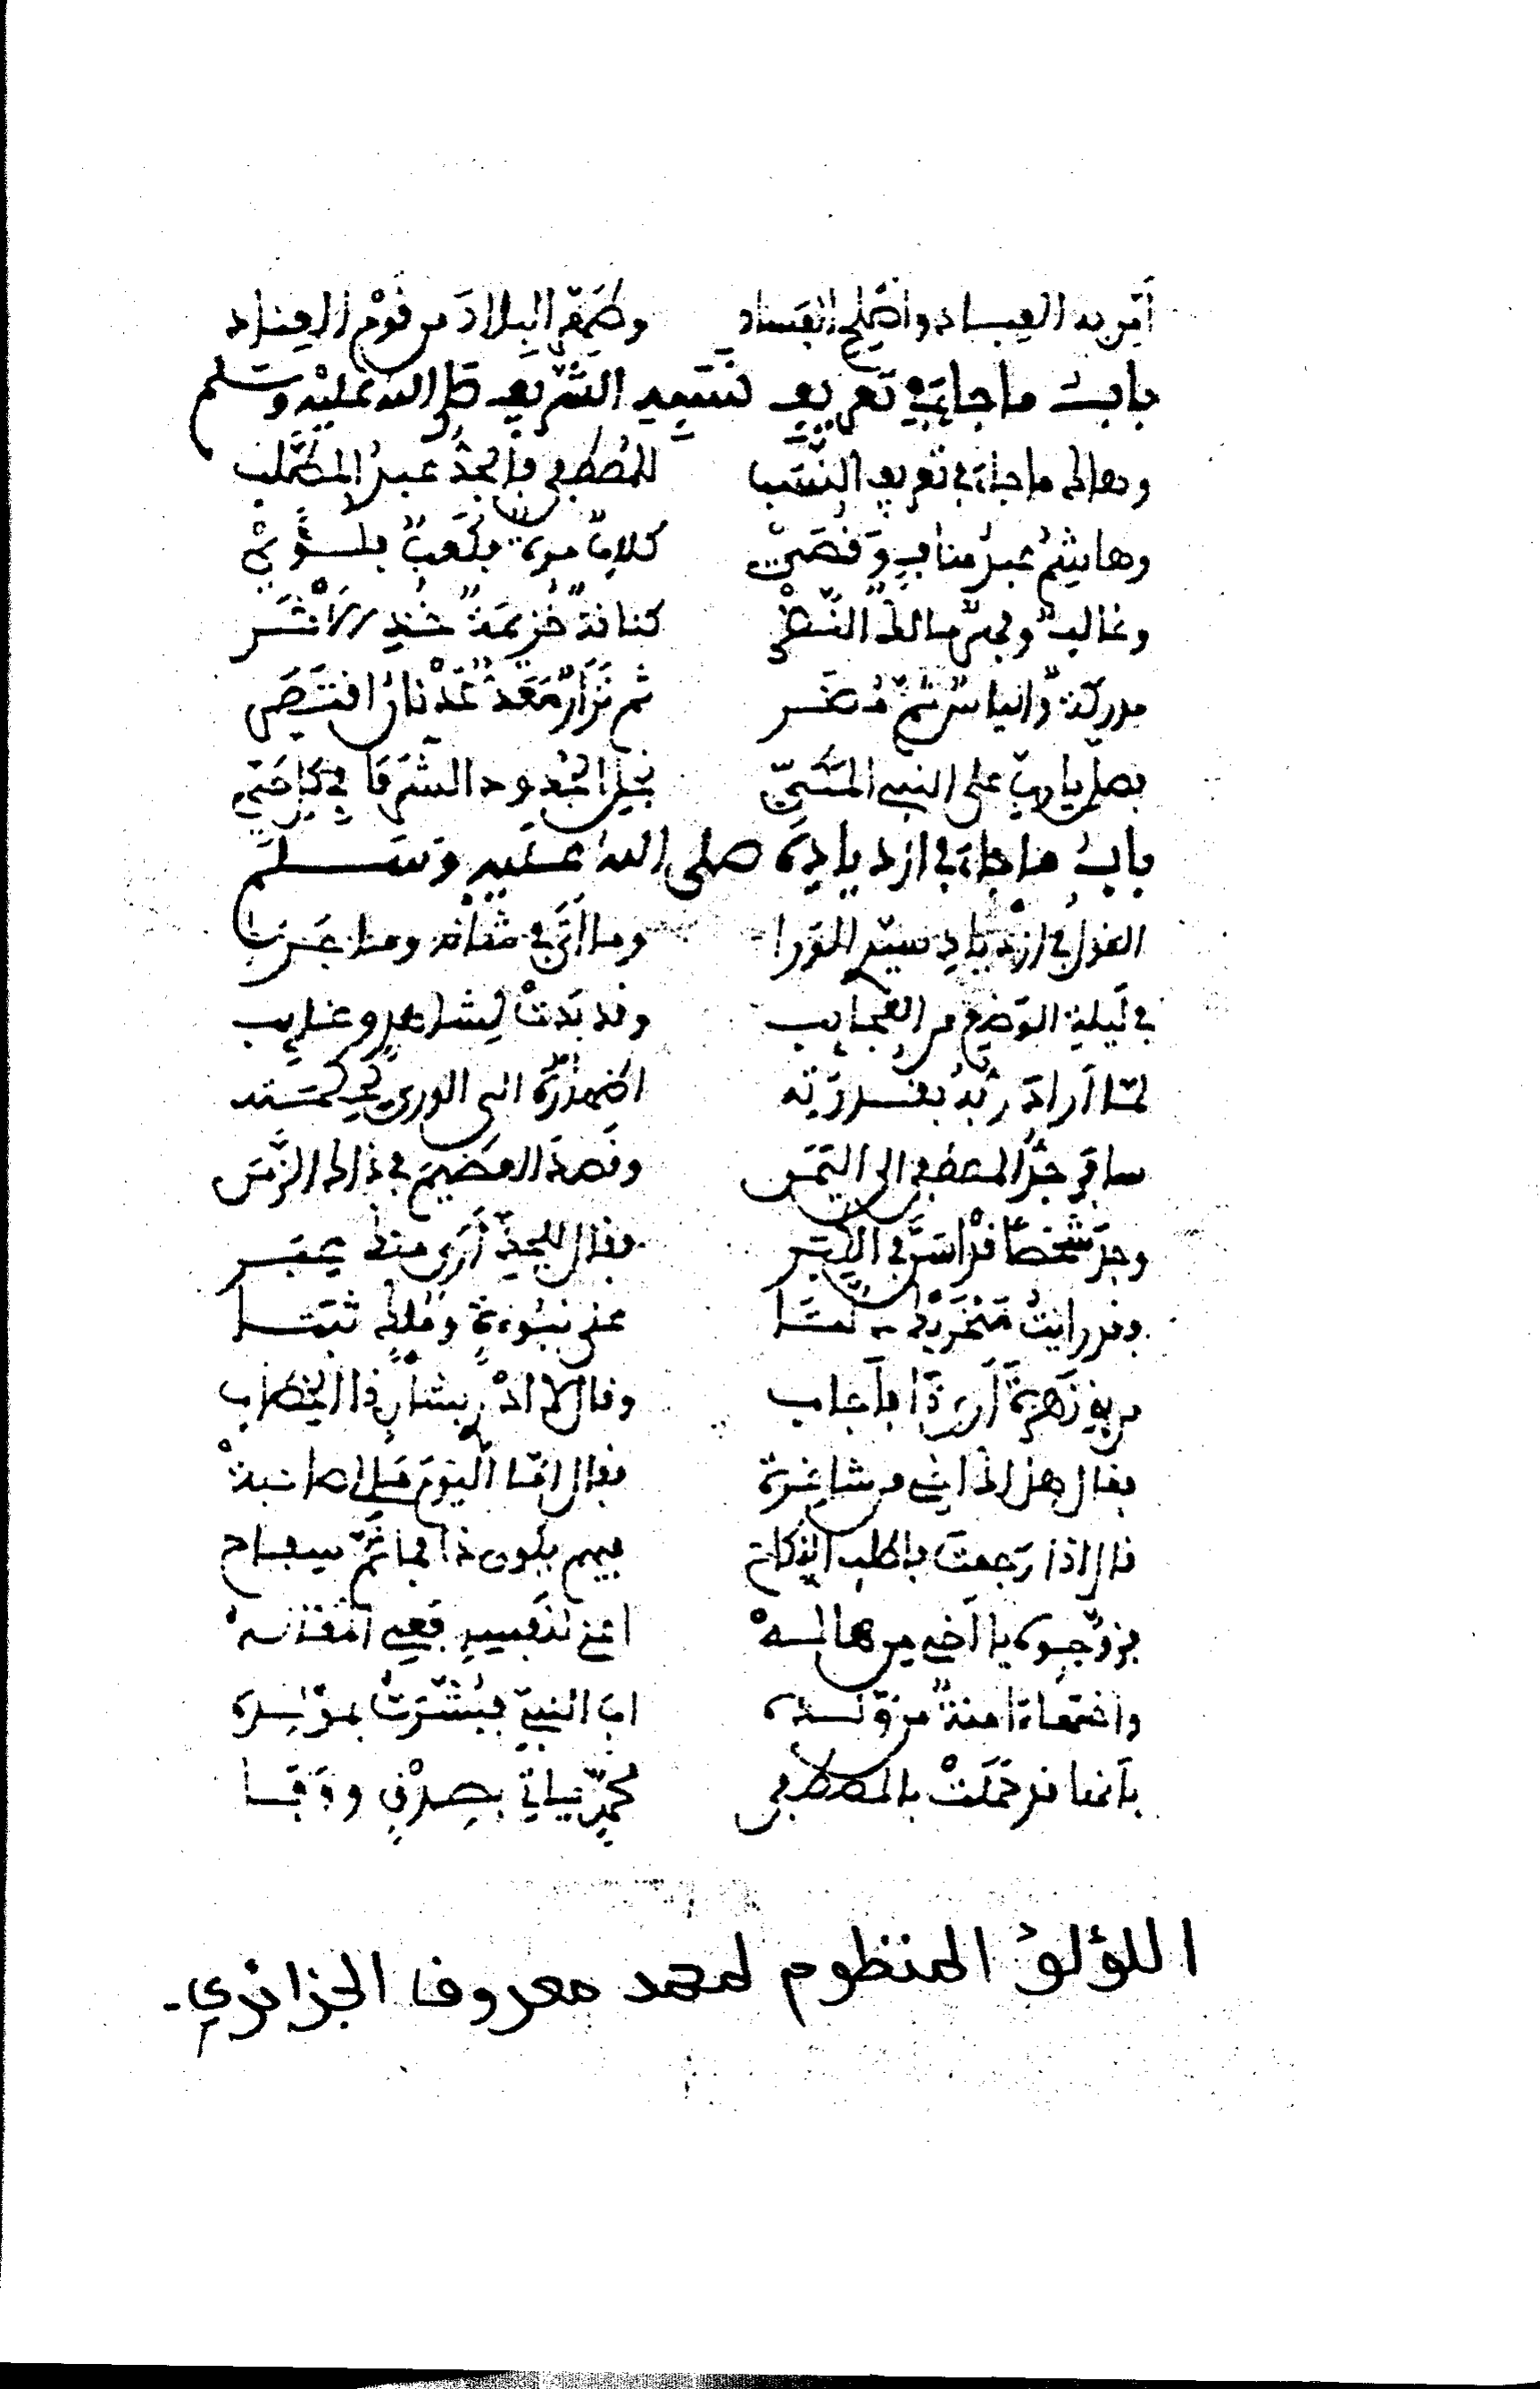 أمن به العباد وأصلح الفساد وطهر البلاد من قوم العناد
باب ما جاء في تعريف نسبه الشريف صلى الله عليه وسلم
وهاك ما جاء في تعريف النسب للمصطفى فالجد عبد المطلب
وهاشم عبد مناف وقصي كلاب مرة فكعب فلؤي
وغالب وفهر مالك النضر كنانة خزيمة خذ الأثر
مدركة والياس ثم مضر ثم نزار معد عدنان
فصل يا رب على النبي نجل الجدود الشرفا في كل
باب ما جاء في ازدياده صلى الله عليه وسلم
القول في ازدياد سيد الورا وما أتى في شأنه وما جرى
في ليلة الوضع من العجايب وقد بدت شواهد وغرايب
لما أراد ربه بقدرته اظهاره الى الورى بحكمته
سافر جد المصطفى الى اليمن وقصده العظيم في ذاك الزمن
وجد شخصا قد في وقال للجد أرى منك
وقد رايت منخريك على نبوءة وملك ثبتا
من بني زهرة أرى ذا فأجاب وقال لا ادر بشأن ذا الخطاب
فقال هل لك اخي من شاعة فقال اما اليوم صاحبة
قال اذا رجعت فاطلب النكاح فيهم يكون ذا فما ثم سفاح
فزوجوه يا أخي من هاله
واختها ءامنة من ولده اب النبي فبشرت بمولده
بأنها قد حملت بالمصطفى محمد ياتي بصدق ووفا
اللؤلؤ المنظوم لمحمد معروف الجزائري.